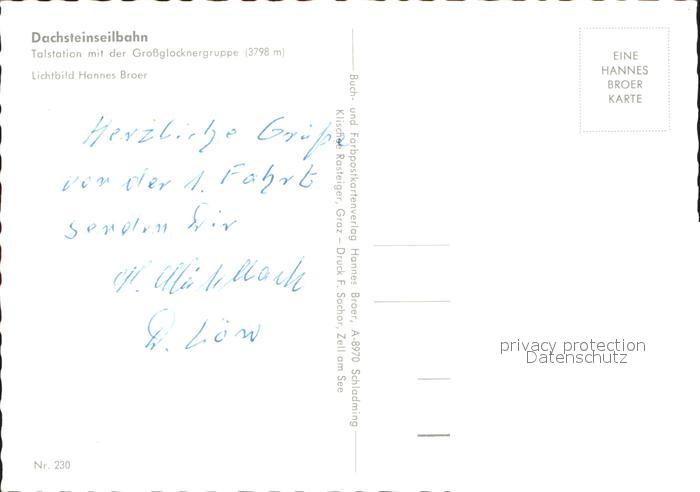 Dachsteinseilbahn
Talstation mit der Großglocknergruppe (3798 m)
Lichtbild Hannes Broer
EINE
HANNES
BROER
KARTE
Herzliche Grüße
von der 1. Fahrt
senden Dir
R. Löw
Buch- und Farbpostkartenverlag Hannes Broer, A-8970 Schladming
Klischee Rasteiger, Graz – Druck F. Sochor, Zell am See
privacy protection
Datenschutz
Nr. 230